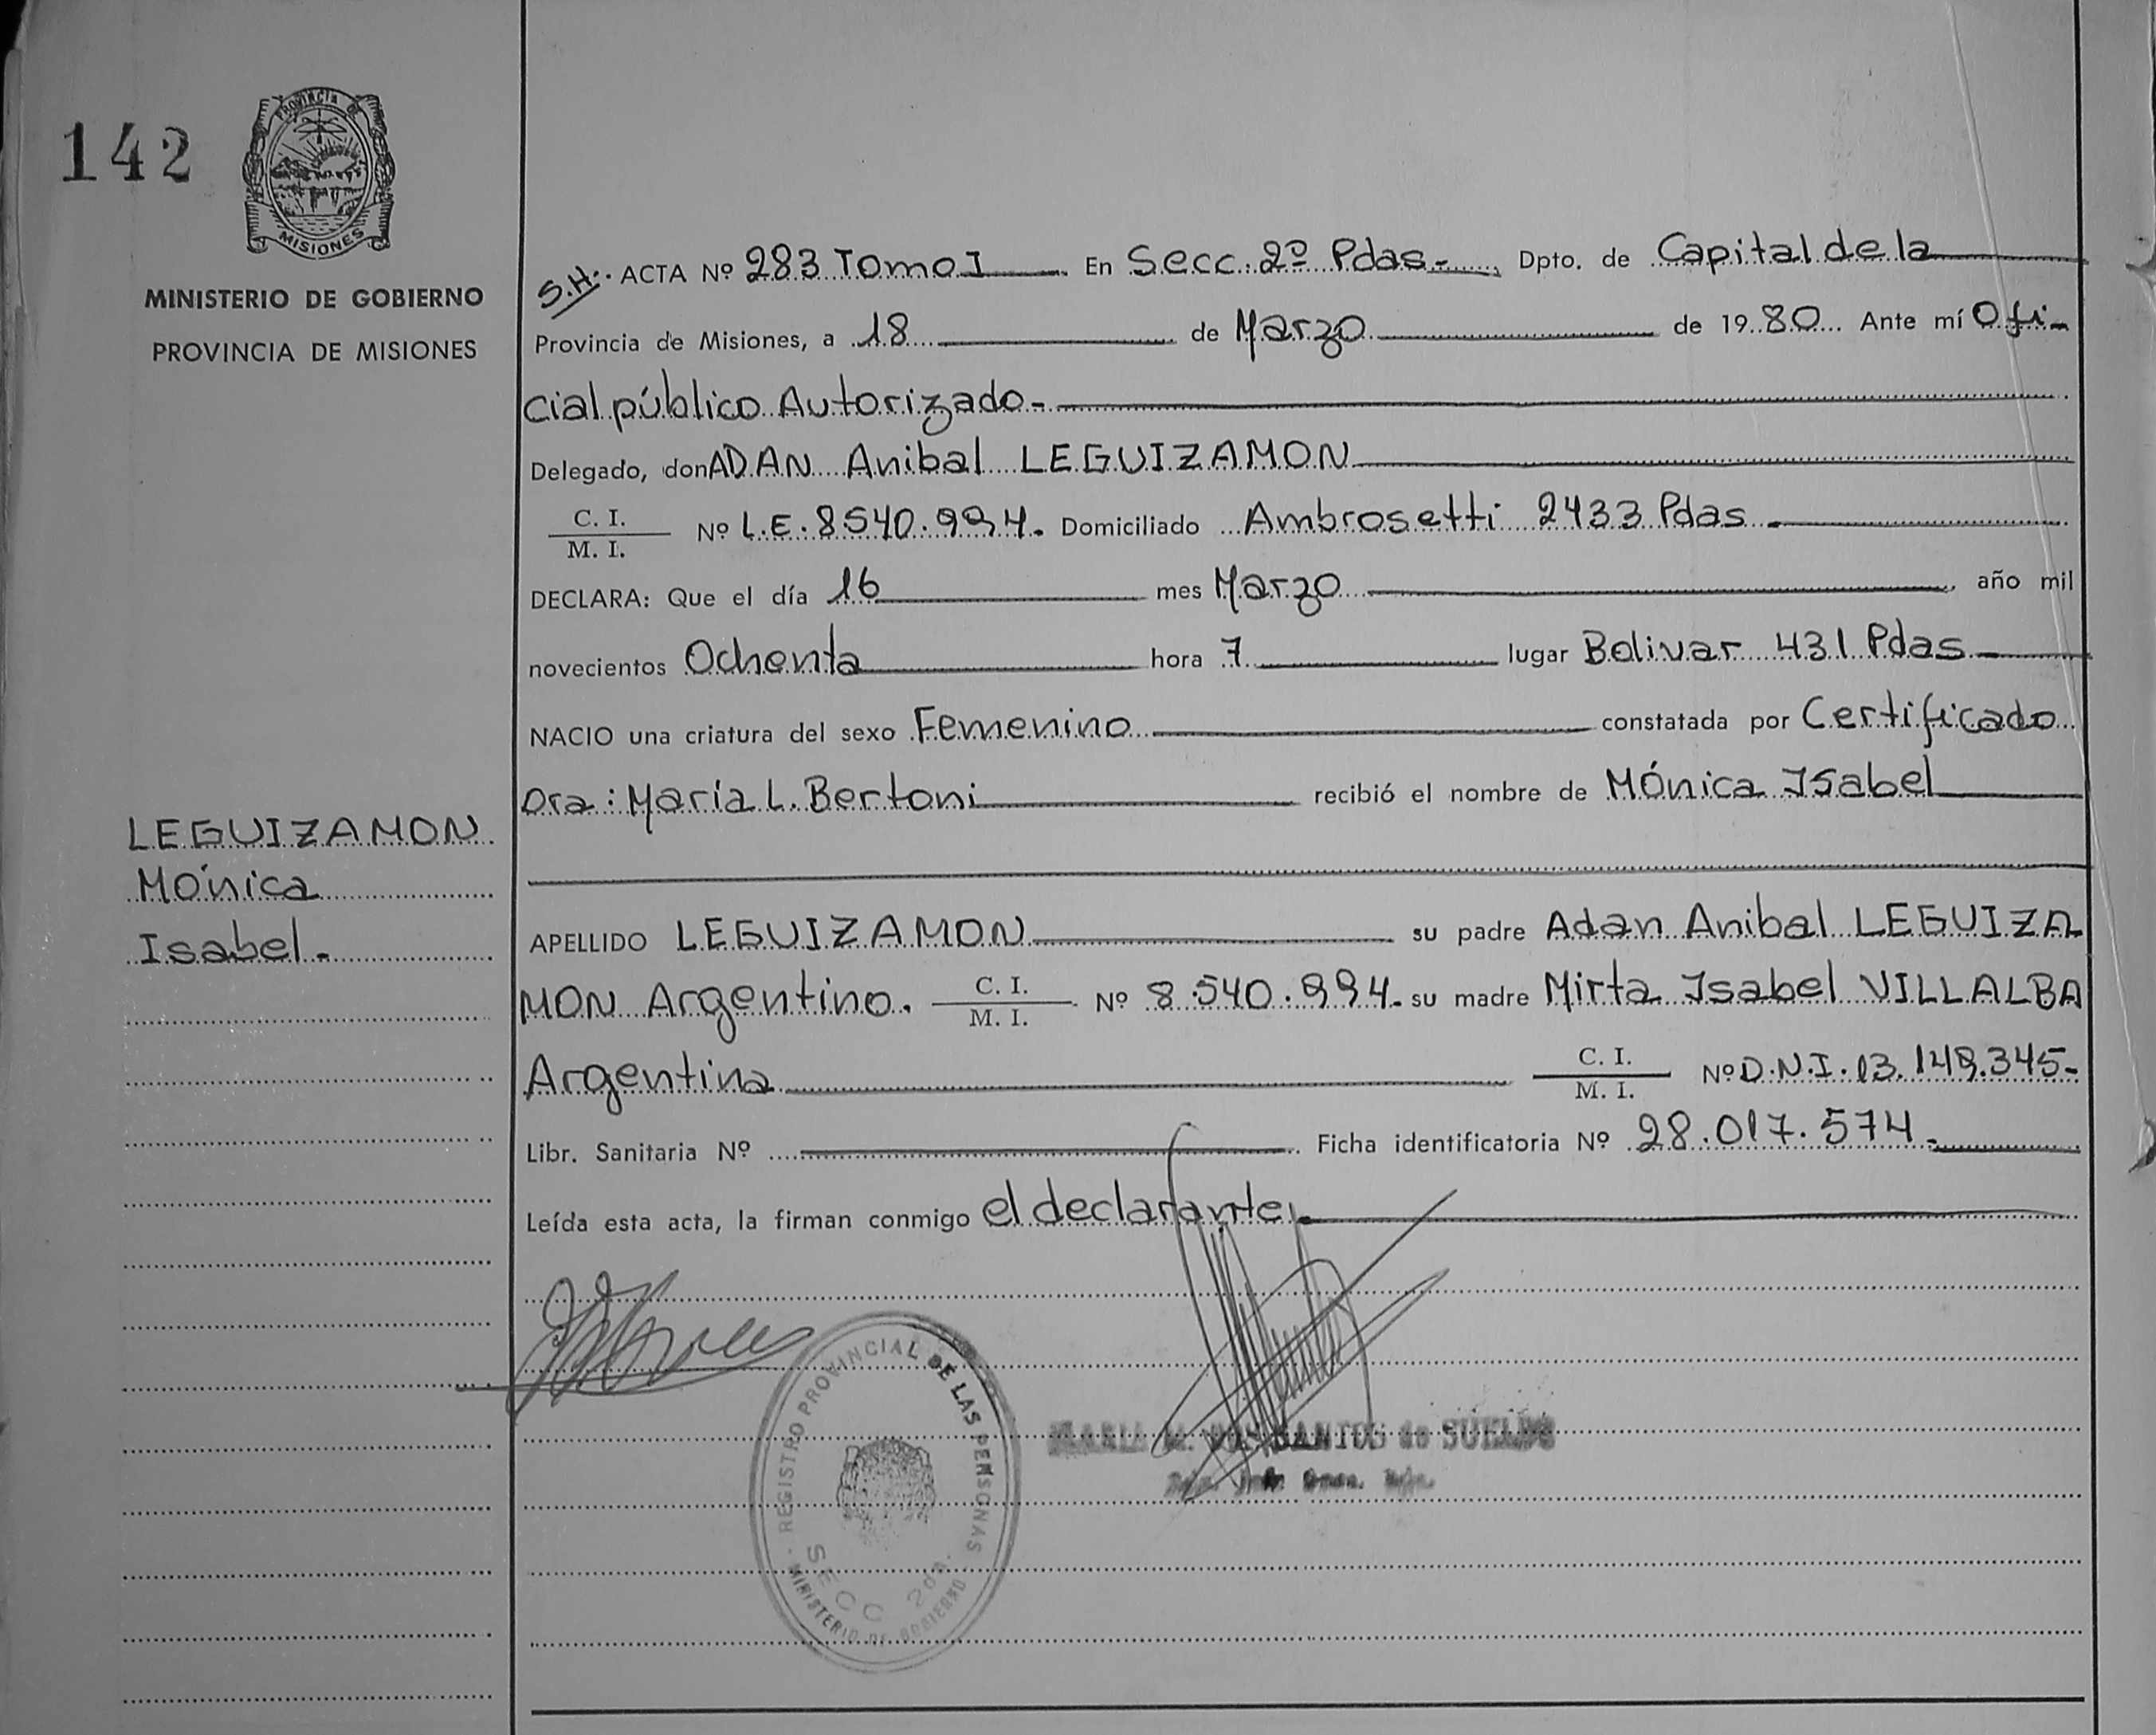 142
PROVINCIA DE
MISIONES
MINISTERIO DE GOBIERNO
PROVINCIA DE MISIONES
S.H. ACTA Nº 283 Tomo I En Secc. 2º Pdas-, Dpto. de Capital de la
Provincia de Misiones, a 18 de Marzo de 1980 Ante mí Ofi-
cial público Autorizado-
Delegado, don ADAN Anibal LEGUIZAMON
C. I.
M. I.
Nº L.E. 8540.994. Domiciliado Ambrosetti 2433 Pdas.
DECLARA: Que el día 16 mes Marzo, año mil
novecientos Ochenta hora 7 lugar Bolivar 431 Pdas
NACIO una criatura del sexo Femenino constatada por Certificado
Dra: María L. Bertoni recibió el nombre de Mónica Isabel
LEGUIZAMON
Mónica
Isabel.
APELLIDO LEGUIZAMON su padre Adan Anibal LEGUIZA
MON Argentino. C. I. M. I. Nº 8.540.994. su madre Mirta Isabel VILLALBA
Argentina C. I. M. I. Nº D.N.I. 13.149.345-
Libr. Sanitaria Nº Ficha identificatoria Nº 28.017.574.
Leída esta acta, la firman conmigo el declarante,
REGISTRO PROVINCIAL DE LAS PERSONAS
MINISTERIO DE GOBIERNO
SECC 2da.
MARIA SANTOS de SUELDO